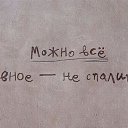 Можно всё
вное — не спали